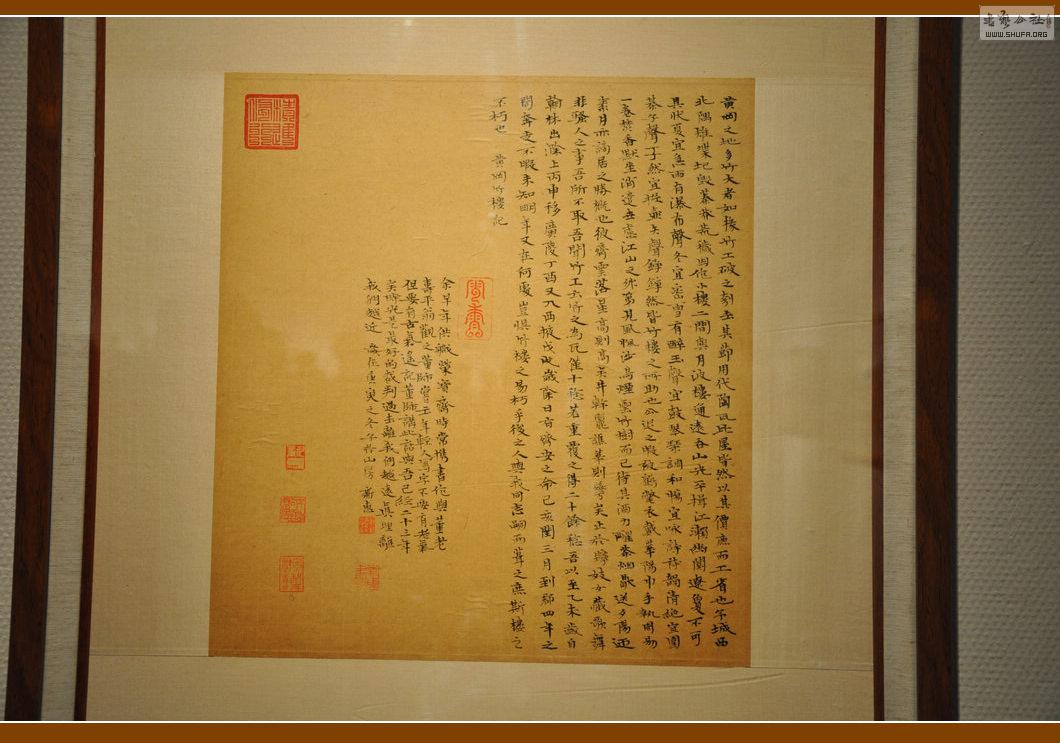 黄岡之地多竹大者如椽竹工破之刳去其節用代陶瓦比屋皆然以其價廉而工省也予城西
北隅雉堞圮毀蓁莽荒穢因作小樓二間與月波樓通遠吞山光平挹江瀨幽闃遼夐不可
具狀夏宜急雨有瀑布聲冬宜密雪有碎玉聲宜鼓琴琴調和暢宜咏詩詩韻清絕宜圍
棋子聲丁丁然宜投壺矢聲錚錚然皆竹樓之所助也公退之暇被鶴氅衣戴華陽巾手執周易
一卷焚香默坐消遣世慮江山之外第見風帆沙鳥煙雲竹樹而已待其酒力醒茶烟歇送夕陽迎
素月亦謫居之勝概也彼齊雲落星高則高矣井幹麗譙華則華矣止於貯妓女藏歌舞
非騷人之事吾所不取吾聞竹工云竹之為瓦僅十稔若重覆之得二十稔吾以至乙未歲自
翰林出滁上丙申移廣陵丁酉又入西掖戊戌歲除日有齊安之命己亥閏三月到郡四年之
間奔走不暇未知明年又在何處豈懼竹樓之易朽乎後之人與我同志嗣而葺之庶斯樓之
不朽也 黄岡竹樓記
余早年供職榮寶齋時常携書作與董老
壽平翁觀之董師嘗云年輕人寫字不要有老氣
但要有古氣
我們越近
WWW.SHUFA.ORG